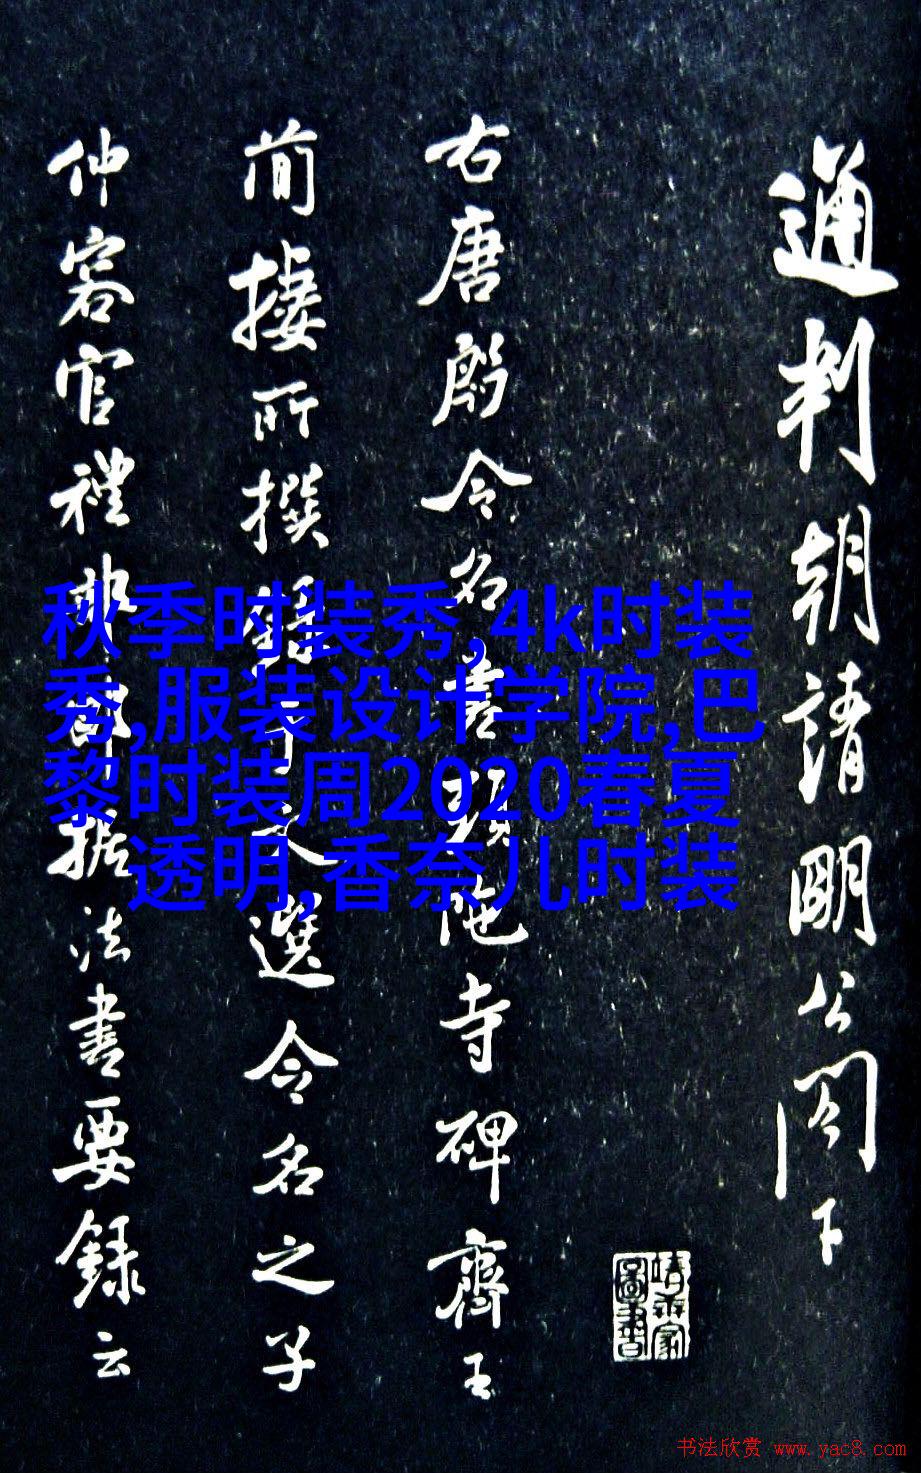 通判朝請明公閣下
右唐殷令名書頭陀寺碑齊王
簡棲所撰文選令名之子
仲容官禮部郎據法書要録云
秋季时装秀,4k时装
秀,服装设计学院,巴
黎时装周2020春夏
透明,香奈儿时装
书法欣赏 www.yac8.com